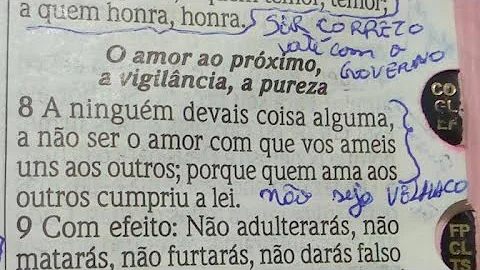 a quem honra, honra.
SER CORRETO
até com o
GOVERNO
O amor ao próximo,
a vigilância, a pureza
8 A ninguém devais coisa alguma,
a não ser o amor com que vos ameis
uns aos outros; porque quem ama aos
outros cumpriu a lei.
não seja VELHACO
9 Com efeito: Não adulterarás, não
matarás, não furtarás, não darás falso
CO
GL
EF
FP
CL
TS